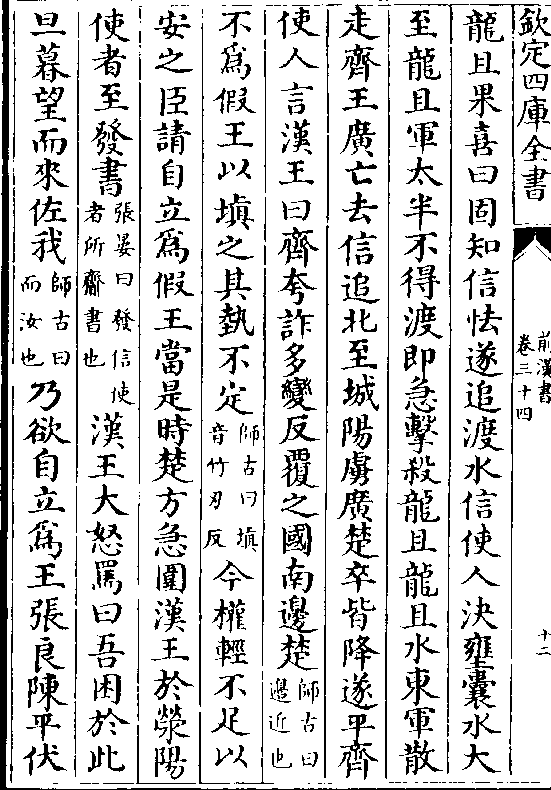 欽定四庫全書
前漢書
卷三十四
十二
龍且果喜曰固知信怯遂追渡水信使人決壅囊水大
至龍且軍太半不得渡即急擊殺龍且龍且水東軍散
走齊王廣亡去信追北至城陽虜廣楚卒皆降遂平齊
使人言漢王曰齊夸詐多變反覆之國南邊楚師古曰邊近也
不為假王以填之其埶不定師古曰填音竹刃反今權輕不足以
安之臣請自立為假王當是時楚方急圍漢王於滎陽
使者至發書張晏曰發信使者所齎書也漢王大怒罵曰吾困於此
旦暮望而來佐我師古曰而汝也乃欲自立為王張良陳平伏